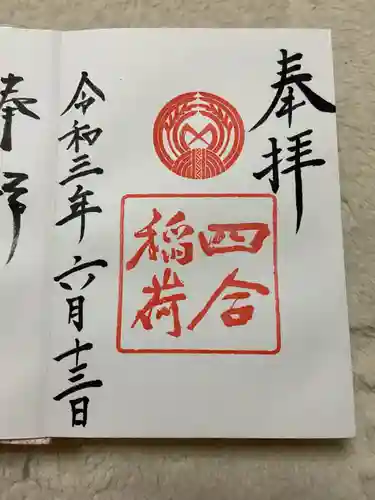 奉拝
四合
稲荷
令和三年 六月十三日
奉拝